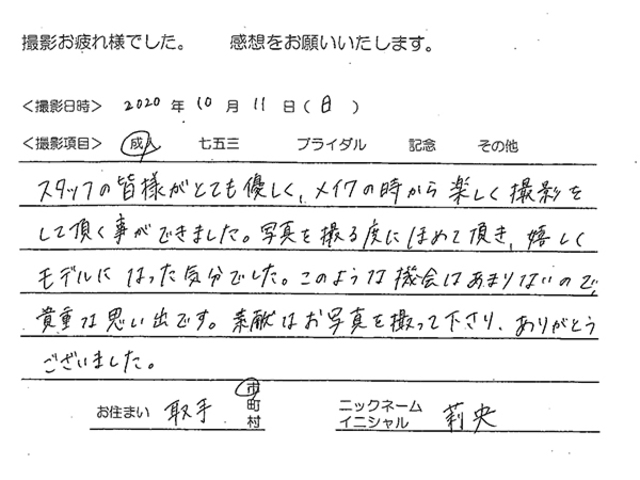 撮影お疲れ様でした。 感想をお願いいたします。
<撮影日時> 2020 年 10 月 11 日(日)
<撮影項目> 成人 七五三 ブライダル 記念 その他
スタッフの皆様がとても優しく、メイクの時から楽しく撮影を
して頂く事ができました。写真を撮る度にほめて頂き、嬉しく
モデルになった気分でした。このような機会はあまりないので、
貴重な思い出です。素敵なお写真を撮って下さり、ありがとう
ございました。
お住まい 取手 市 町 村 ニックネーム イニシャル 莉央